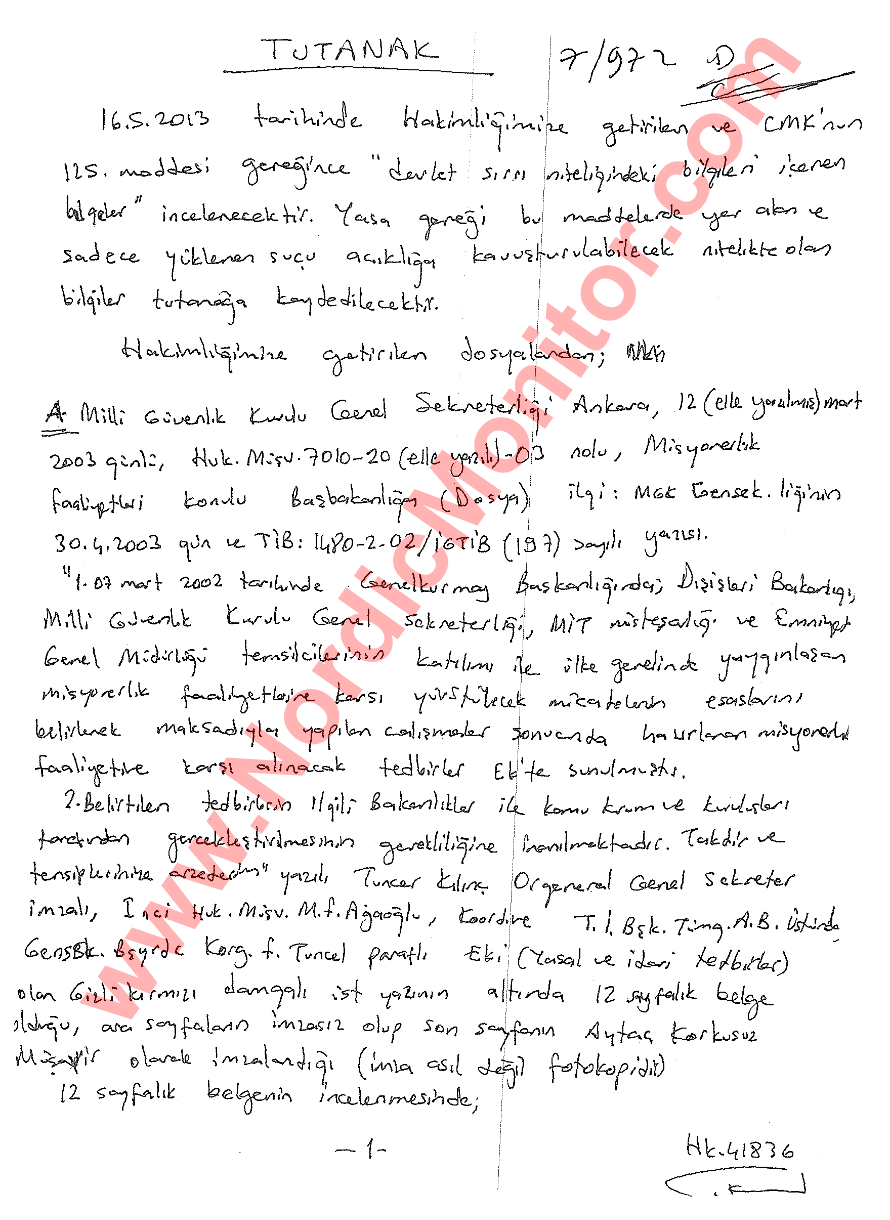 TUTANAK 7/972
16.5.2013 tarihinde Hakimliğimize getirilen ve CMK'nun
125. maddesi gereğince "devlet sırrı niteliğindeki bilgileri içeren
belgeler" incelenecektir. Yasa gereği bu maddelerde yer alan ve
sadece yüklenen suçu açıklığa kavuşturulabilecek nitelikte olan
bilgiler tutanağa kaydedilecektir.
Hakimliğimize getirilen dosyalardan;
A- Milli Güvenlik Kurulu Genel Sekreterliği Ankara, 12 (elle yazılmış) mart
2003 günlü, Huk. Müşv. 7010-20 (elle yazılı)-03 nolu, Misyonerlik
faaliyetleri konulu Başbakanlığa (Dosya) ilgi: MGK Gensek.liğinin
30.4.2003 gün ve TİB: 1480-2-02/İGTİB (197) sayılı yazısı.
"1. 07 mart 2002 tarihinde Genelkurmay Başkanlığında; Dışişleri Bakanlığı,
Milli Güvenlik Kurulu Genel Sekreterliği, MİT müsteşarlığı ve Emniyet
Genel Müdürlüğü temsilcilerinin katılımı ile ülke genelinde yaygınlaşan
misyonerlik faaliyetlerine karşı yürütülecek mücadelenin esaslarını
belirlemek maksadıyla yapılan çalışmalar sonucunda hazırlanan misyonerlik
faaliyetine karşı alınacak tedbirler Ek'te sunulmuştu.
2. Belirtilen tedbirlerin ilgili Bakanlıklar ile kamu kurum ve kuruluşları
tarafından gerçekleştirilmesinin gerekliliğine inanılmaktadır. Takdir ve
tensiplerinize arzederim" yazılı Tuncer Kılınç Orgeneral Genel Sekreter
imzalı, Huk. Müşv. M.F. Ağaoğlu, Koordine T.İ. Bşk. Tümg. A.B. Üstünde
Korg. F. Tuncel paraflı Eki (Yasal ve idari tedbirler)
olan Gizli kırmızı damgalı üst yazının altında 12 sayfalık belge
olduğu, ara sayfaların imzasız olup son sayfanın Aytaç Korkusuz
Müşavir olarak imzalandığı (imza asıl değil fotokopidir)
12 sayfalık belgenin incelenmesinde;
-1-
Hk.41836
www.NordicMonitor.com